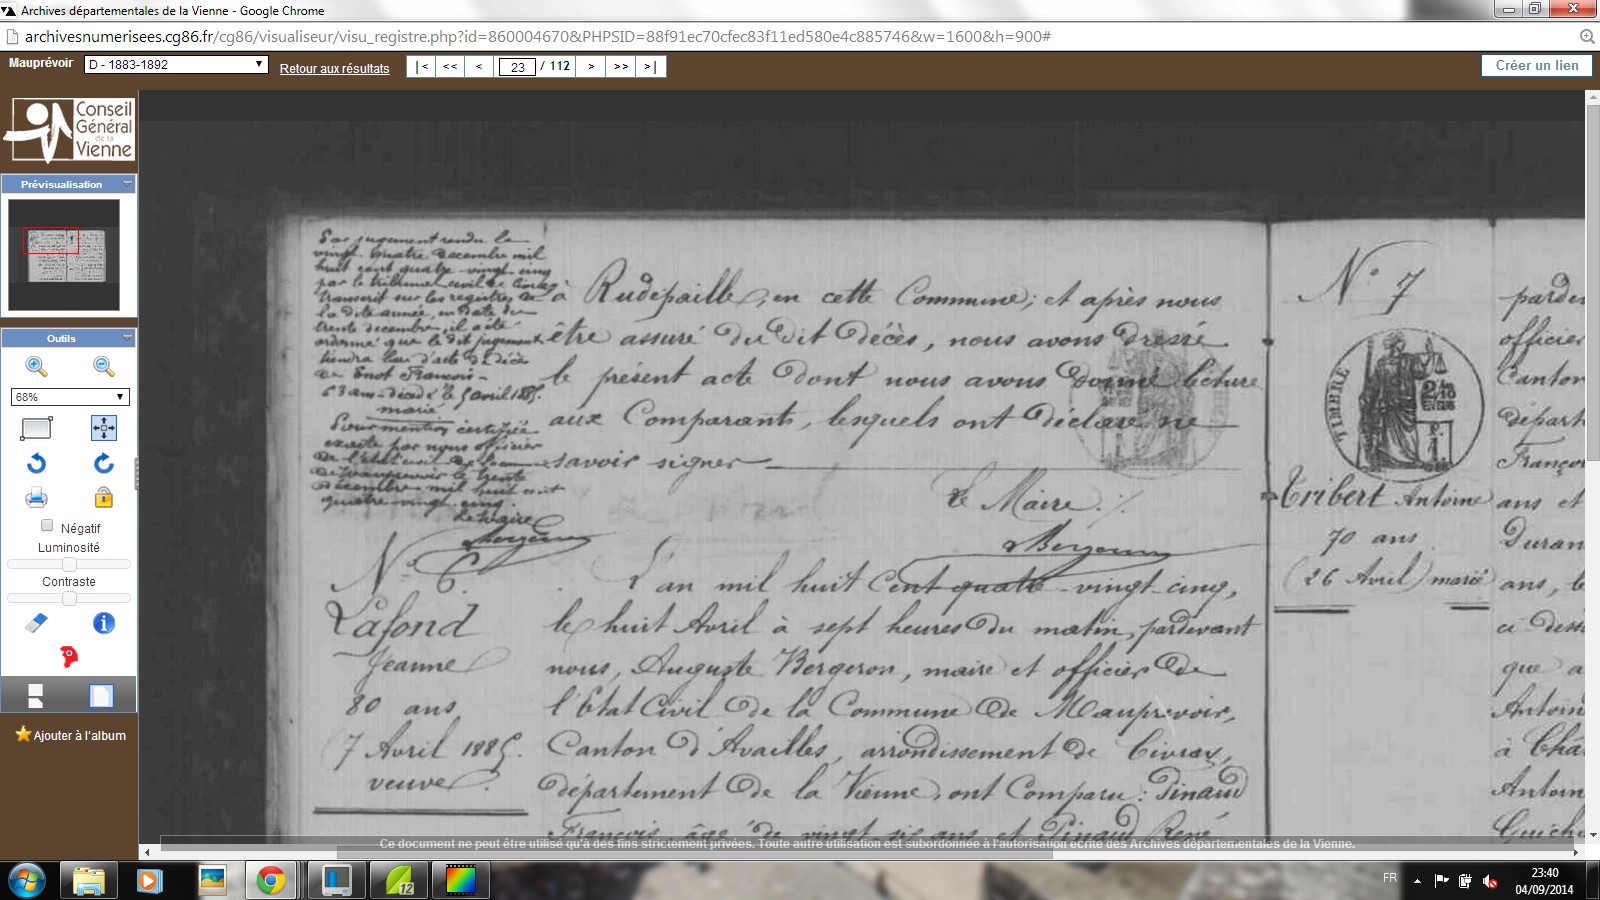 Archives départementales de la Vienne - Google Chrome
archivesnumerisees.cg86.fr/cg86/visualiseur/visu_registre.php?id=860004670&PHPSID=88f91ec70cfec83f11ed580e4c885746&w=1600&h=900#
Mauprévoir
D - 1883-1892
Retour aux résultats
|<
<<
<
23 / 112
>
>>
>|
Créer un lien
Conseil
Général
de la
Vienne
Prévisualisation
Outils
68%
Négatif
Luminosité
Contraste
Ajouter à l'album
Par jugement rendu le
vingt quatre decembre mil
huit cent quatre-vingt cinq
par le tribunal civil de Civray
transcrit sur les registres de
la dite année, en date du
trente decembre, il a été
ordonné que le dit jugement
tiendra lieu d'acte de décès
de Enot François
63 ans - décédé le 5 avril 1885.
marié
Pour mention certifiée
exacte par nous officier
de l'état civil de
Mauprevoir le trente
decembre mil huit cent
quatre vingt cinq.
Le Maire
Bergeron
à Rudepaille, en cette Commune; et après nous
être assuré du dit décès, nous avons dressé
le présent acte dont nous avons donné lecture
aux Comparants, lesquels ont déclaré ne
savoir signer
Le Maire
Bergeron
N° 6.
Lafond
Jeanne
80 ans
7 Avril 1885.
veuve
L'an mil huit cent quatre-vingt-cinq,
le huit Avril à sept heures du matin, pardevant
nous, Auguste Bergeron, maire et officier de
l'Etat Civil de la Commune de Mauprevoir,
Canton d'Availles, arrondissement de Civray,
département de la Vienne, ont Comparu: Pinaud
François, âgé de vingt six ans et Pinaud René
N° 7
TIMBRE
Tribert Antoine
70 ans
(26 Avril) marié
parde
officier
Canton
départ
Franço
ans et
Duran
ans, le
ci dess
que a
Antoin
à Châ
Antoin
Guich
Ce document ne peut être utilisé qu'à des fins strictement privées. Toute autre utilisation est subordonnée à l'autorisation écrite des Archives départementales de la Vienne.
12
FR
23:40
04/09/2014